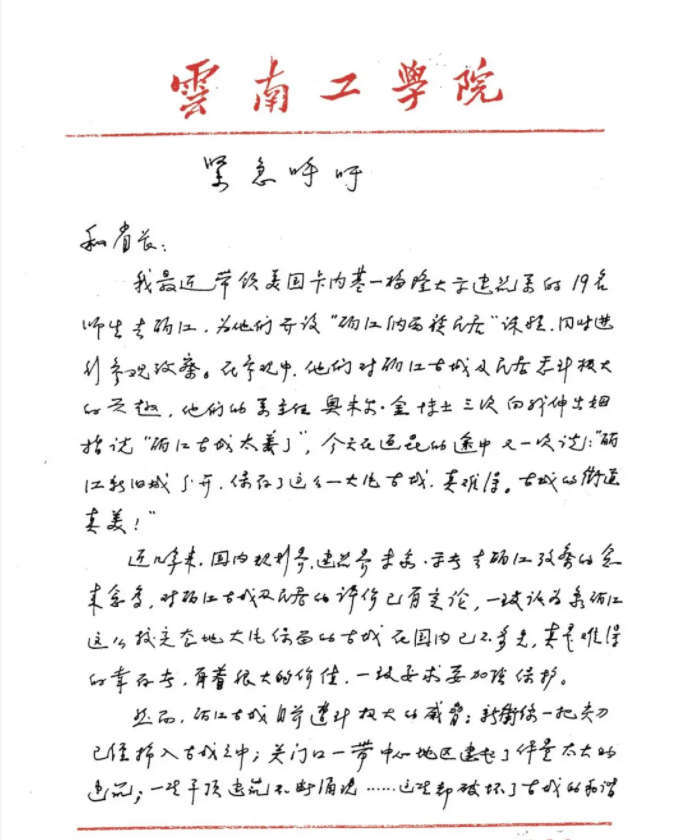 雲南工學院
紧急呼吁
和省长:
我最近带领美国卡内基一梅隆大学建筑系的19名
师生去丽江,为他们开设“丽江纳西族民居”课程,同时进
行参观考察。在参观中,他们对丽江古城及民居表示极大
的兴趣,他们的系主任奥米尔·金博士三次向我伸出拇
指说“丽江古城太美了”,今天在返昆的途中又一次说:“丽
江新旧城分开,保存了这么一大片古城,真难得。古城的街道
真美!”
近几年来,国内规划界、建筑界专家、学者去丽江考察的愈
来愈多,对丽江古城及民居的评价已有定论,一致认为象丽江
这么较完整地大片保留的古城在国内已不多见,真是难得
的幸存者,有着很大的价值,一致要求要加强保护。
然而,丽江古城目前遭到极大的威胁:新街像一把尖刀
已经插入古城之中;关门口一带中心地区建起了体量太大的
建筑;一些平顶建筑不断涌现……这些都破坏了古城的和谐